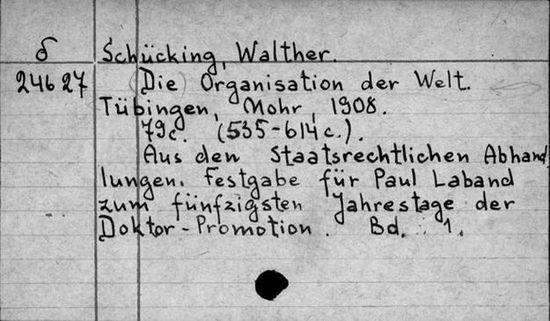 б Schücking, Walther.
24627 (Die) Organisation der Welt.
Tübingen, Mohr, 1908.
79c. (535-614c.).
Aus den Staatsrechtlichen Abhand
lungen. Festgabe für Paul Laband
zum fünfzigsten Jahrestage der
Doktor-Promotion. Bd. 1.